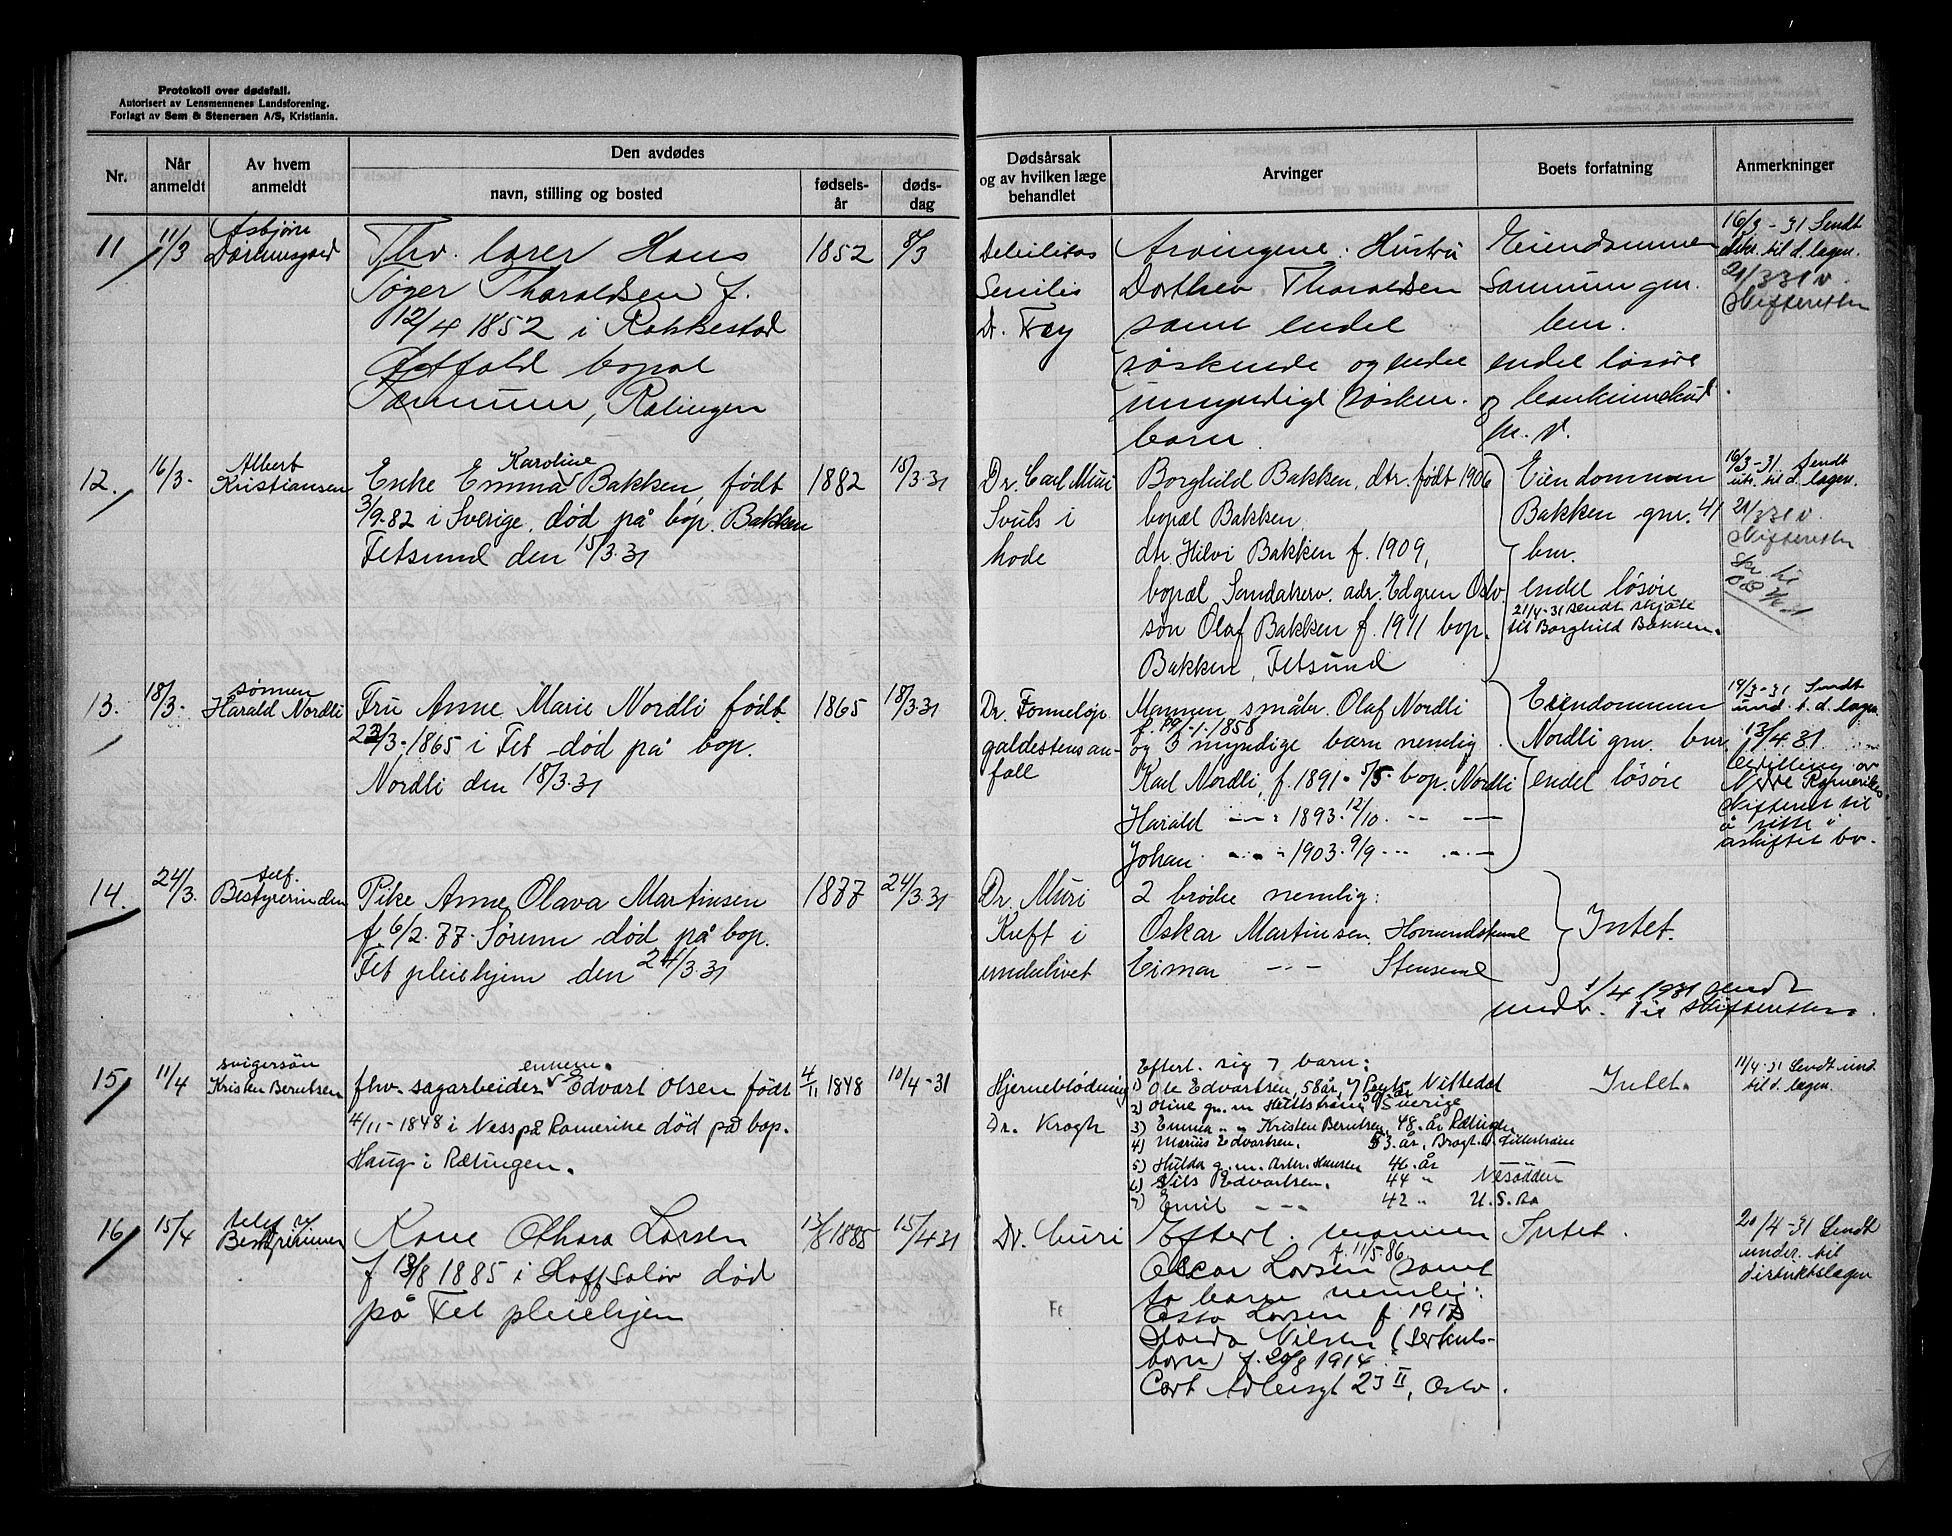 Protokoll over dødsfall.
Autorisert av Lensmennenes Landsforening.
Forlagt av Sem & Stenersen A/S, Kristiania.
Nr.
Når anmeldt
Av hvem anmeldt
Den avdødes
navn, stilling og bosted
fødsels-år
døds-dag
Dødsårsak
og av hvilken læge
behandlet
Arvinger
Boets forfatning
Anmerkninger
11
11/3
Asbjørn
Fhv. lærer Hans
Tharaldsen f.
12/4 1852 i Rakkestad
Østfold bopæl
Rælingen
1852
8/3
Debilitas
Senilis
Dr. Fay
Arvingene. Hustru
Dorthea Tharaldsen
samt endel
søskende og endel
umyndige søsken-
barn
Eiendommen
gnr.
bnr.
endel løsøre
og bankinnskud
m. v.
16/3-31 Sendt
til d. lægen.
21/3 31
Skifteretten
12.
16/3-
Albert
Kristiansen
Karoline
Enke Emma Bakken, født
3/9-82 i Sverige, død på bop. Bakken
Fetsund den 15/3.31
1882
15/3.31
Dr. Carl Muri
Svuls i
hode
Borghild Bakken, dtr. født 1906
bopæl Bakken
dtr. Hilvi Bakken f. 1909,
bopæl Sandakerv. adr. Edgren Oslo
søn Olaf Bakken f. 1911 bop.
Bakken, Fetsund
Eiendommen
Bakken gnr. 41
bnr.
endel løsøre
21/4-31 sendt skjøte
til Borghild Bakken.
16/3-31. Sendt
til d. lægen.
21/3 31
Skifteretten
13.
18/3-
sønnen
Harald Nordli
Fru Anne Marie Nordli født
22/3-1865 i Fet - død på bop.
Nordli den 18/3.31
1865
18/3.31
Dr. Fonneløp
galdestensan-
fall
Mannen småbr. Olaf Nordli
f. 29/1-1858
og 3 myndige barn nemlig
Karl Nordli, f. 1891 - 5/5- bop. Nordli
Harald -"- 1893. 12/10. -- —
Johan. -"- 1903. 9/9 --- —
Eiendommen
Nordli gnr. bnr.
endel løsøre
19/3-31 Sendt
und. t. d. lægen
13/4.31.
bevilling av
Nedre Romerikes
Skifterett til
å sitte i
uskiftet bo.
14.
24/3.
telf.
Bestyrerinden
Pike Anne Olava Martinsen
f. 6/2. 77. Sørum død på bop.
Fet pleiehjem den 24/3.31
1877
24/3.31
Dr. Muri
Kreft i
underlivet
2 brødre nemlig:
Oskar Martinsen
Einar -- -
Intet.
1/4 1931 sendt
undr. til skifteretten.
15
11/4
svigersøn
Kristen Berntsen
enkem.
fhv. sagarbeider Edvart Olsen født
4/11-1848 i Nes på Romerike død på bop.
Haug i Rælingen.
4/11 1848
10/4-31
Hjerneblødning
Dr. Krogh
Efterl. sig 7 barn:
1) Ole Edvartsen, 58 år Nittedal
2) Oline g.m. Sverige
3) Emma " " Kristen Berntsen, 48. år Rælingen
4) Marius Edvartsen, 53. år, Lillestrøm
5) Hulda g.m. Hansen 46. år
6) Nils Edvartsen. 44 " Nesodden
7) Emil - -- 42 " U.S.A
Intet.
11/4-31 Sendt und.
til d. lægen.
16
15/4
telef. v/
Bestyrerinnen
Kone Othara Larsen
f. 13/8 1885 i Hoff Solør død
på Fet pleiehjem
13/8 1885
15/4 31
Dr. Muri
Efterl. mannen
f. 11/5-86
Oscar Larsen samt
to barn nemlig:
Larsen f 1917
Nilsen (
barn) f. 20/8 1914.
Cort Adlersgt 23 II, Oslo.
Intet.
20/4-31 Sendt
under. til
distriktslægen